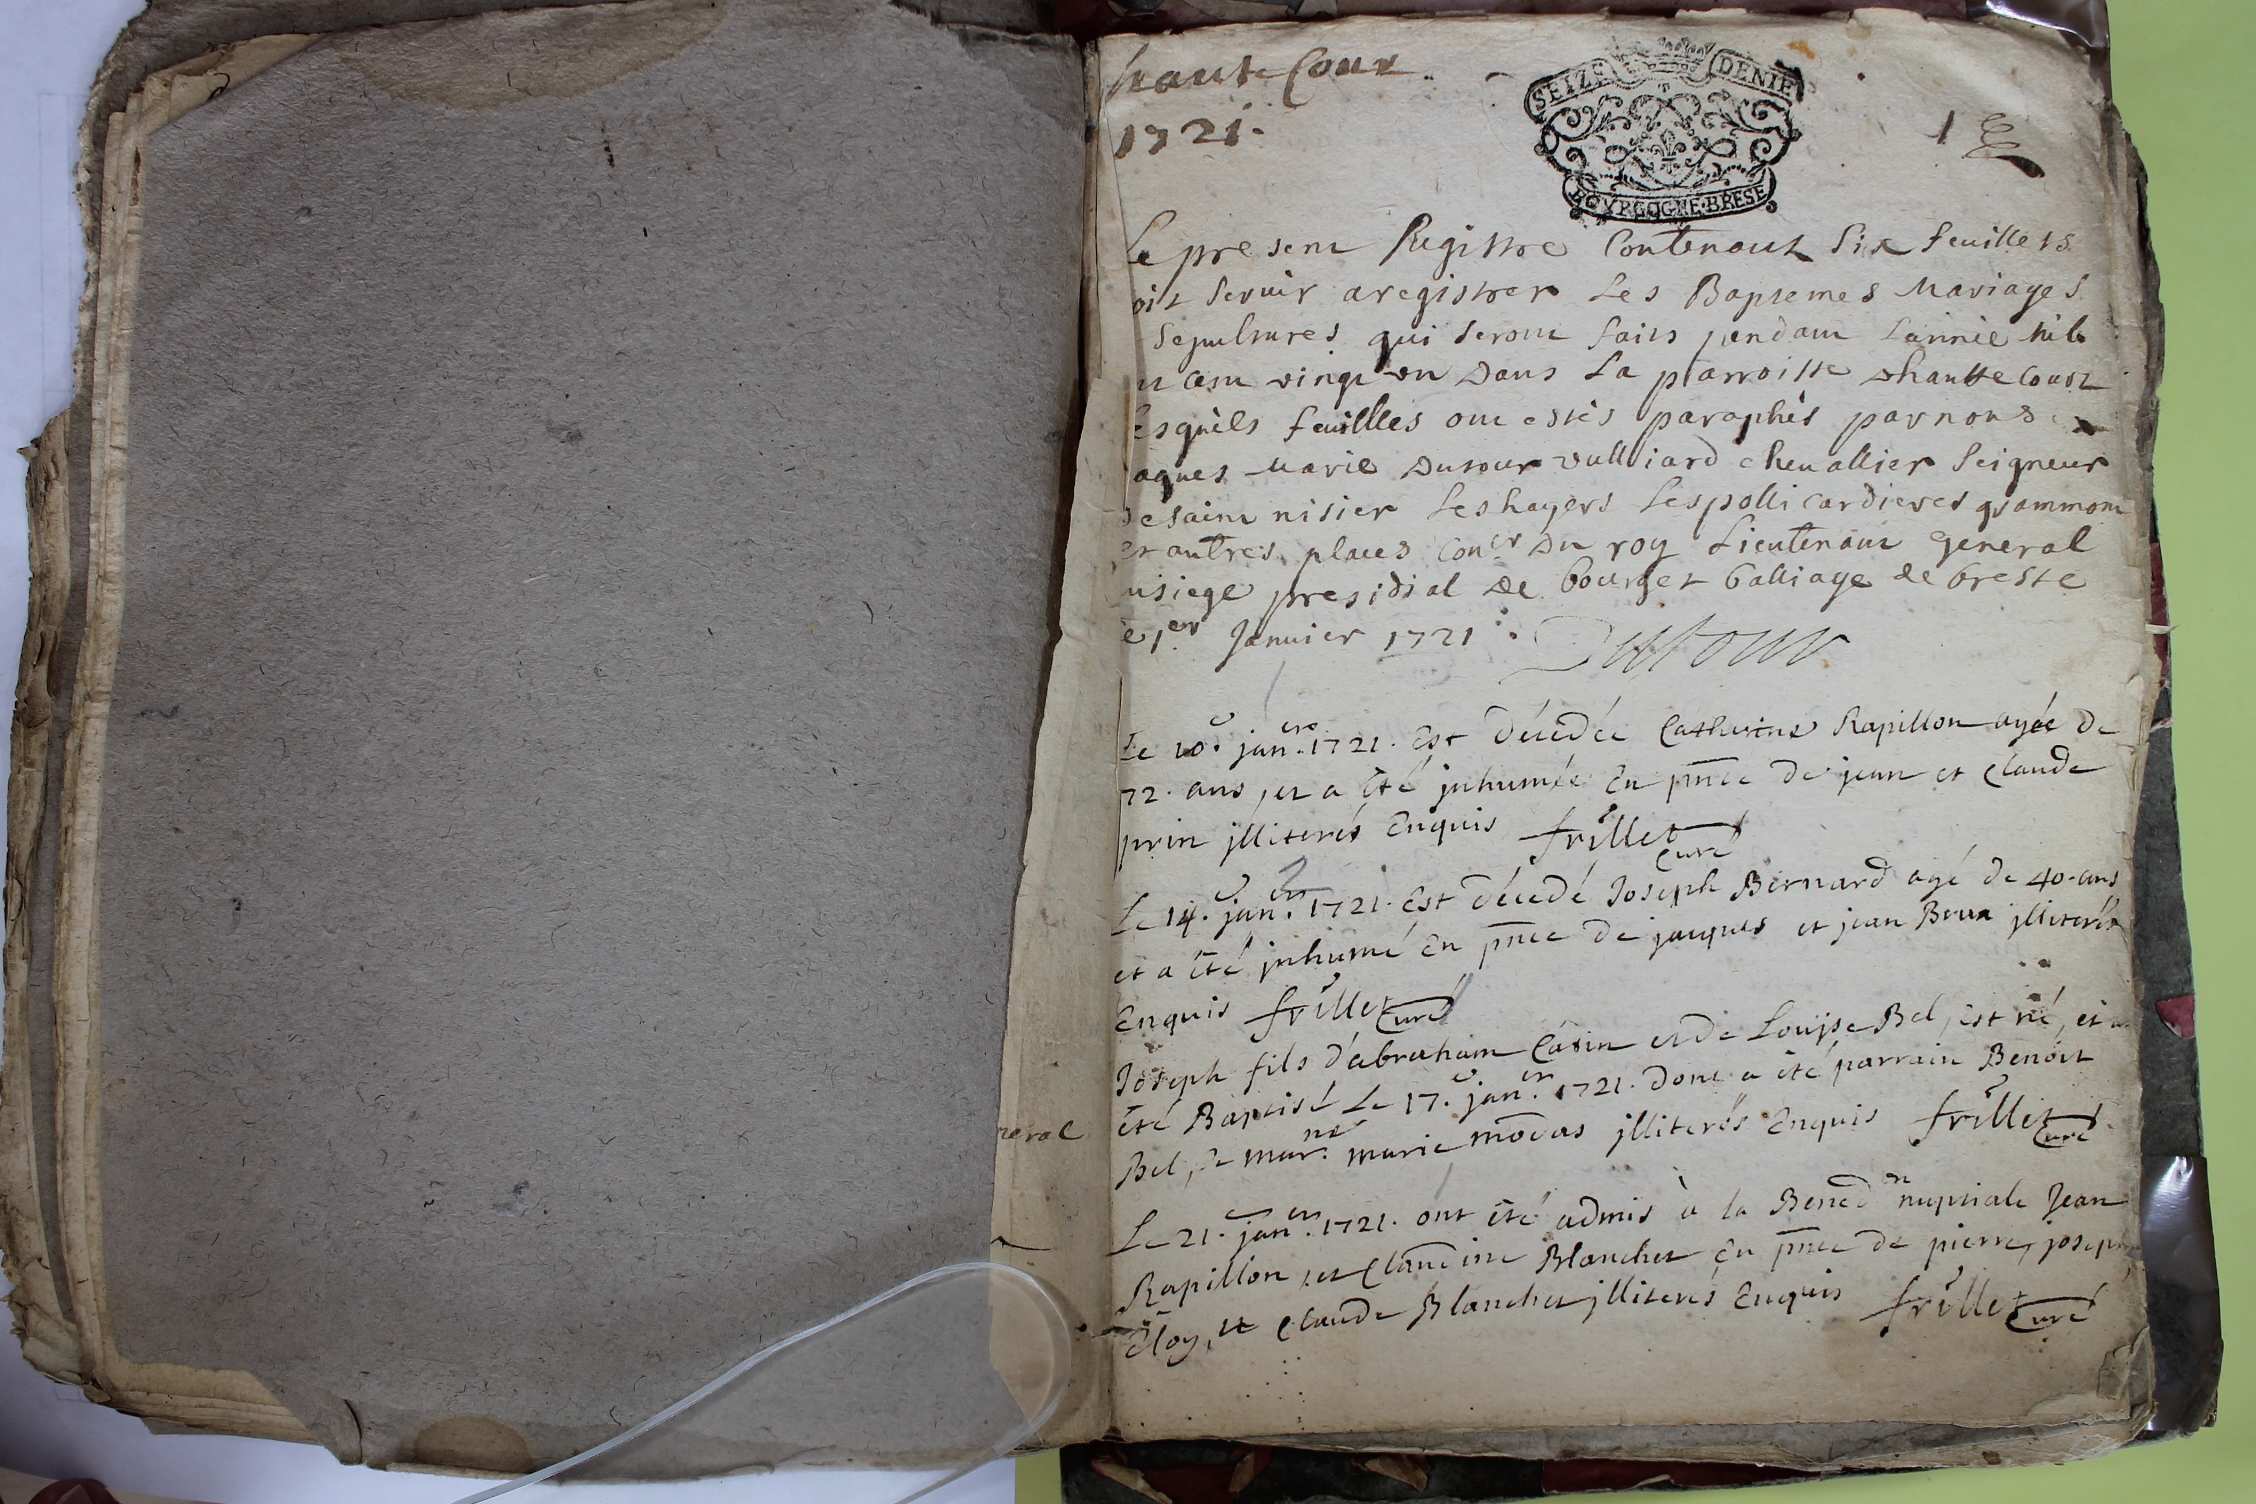 haute Cour
1721.
SEIZE DENIE
BOVRGOGNE·BRESE
1
Le present Registre Contenant six feuillets
oit servir a registrer Les Baptemes Mariages
Sepultures qui seront faits pendant Lannée mil
cent vingt un Dans La parroisse dhautte Court
esquels feuillles ont estés paraphés par nous
aques Marie Dutour vulliard chevallier Seigneur
de saint nisier Les hayers Lespolli cardieres grammont
et autres places Coner Du roy Lieutenant general
usiege presidial de bourg et balliage de bresse
e 1er Janvier 1721. Dutour
Le 10e janer 1721. Est décedée Catherine Rapillon agée de
72. ans, et a été jnhumée En pnce de jean et Claude
prin jlliterés Enquis frillet
Curé
Le 14e janer 1721. Est décedé Joseph Bernard agé de 40. ans
et a été jnhumé En pnce de jacques et jean jlliterés
Enquis frillet Curé
Joseph fils d'abraham et de Louise Bel, est né, et a
été Baptisé Le 17e janer 1721. Dont a été parrain Benoit
Bel, & marne marie jlliterés Enquis frillet
Curé
reral
Le 21e janer 1721. ont été admis à la Benedn nuptiale Jean
Rapillon, et Claudine Blanchet En pnce de pierre, joseph
Eloy, et Claude Blanchet jlliterés Enquis frillet Curé